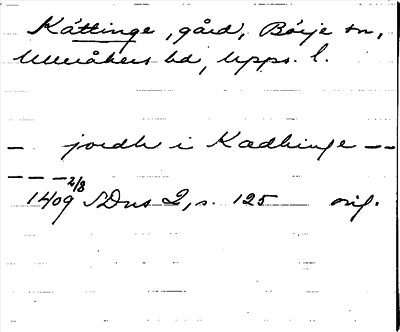 Kättinge, gård, Börje sn,
Ulleråkers hd, Upps. l.
— jordh i Kædhinge — —
— — — 2/8
1409 SDns 2, s. 125 orig.